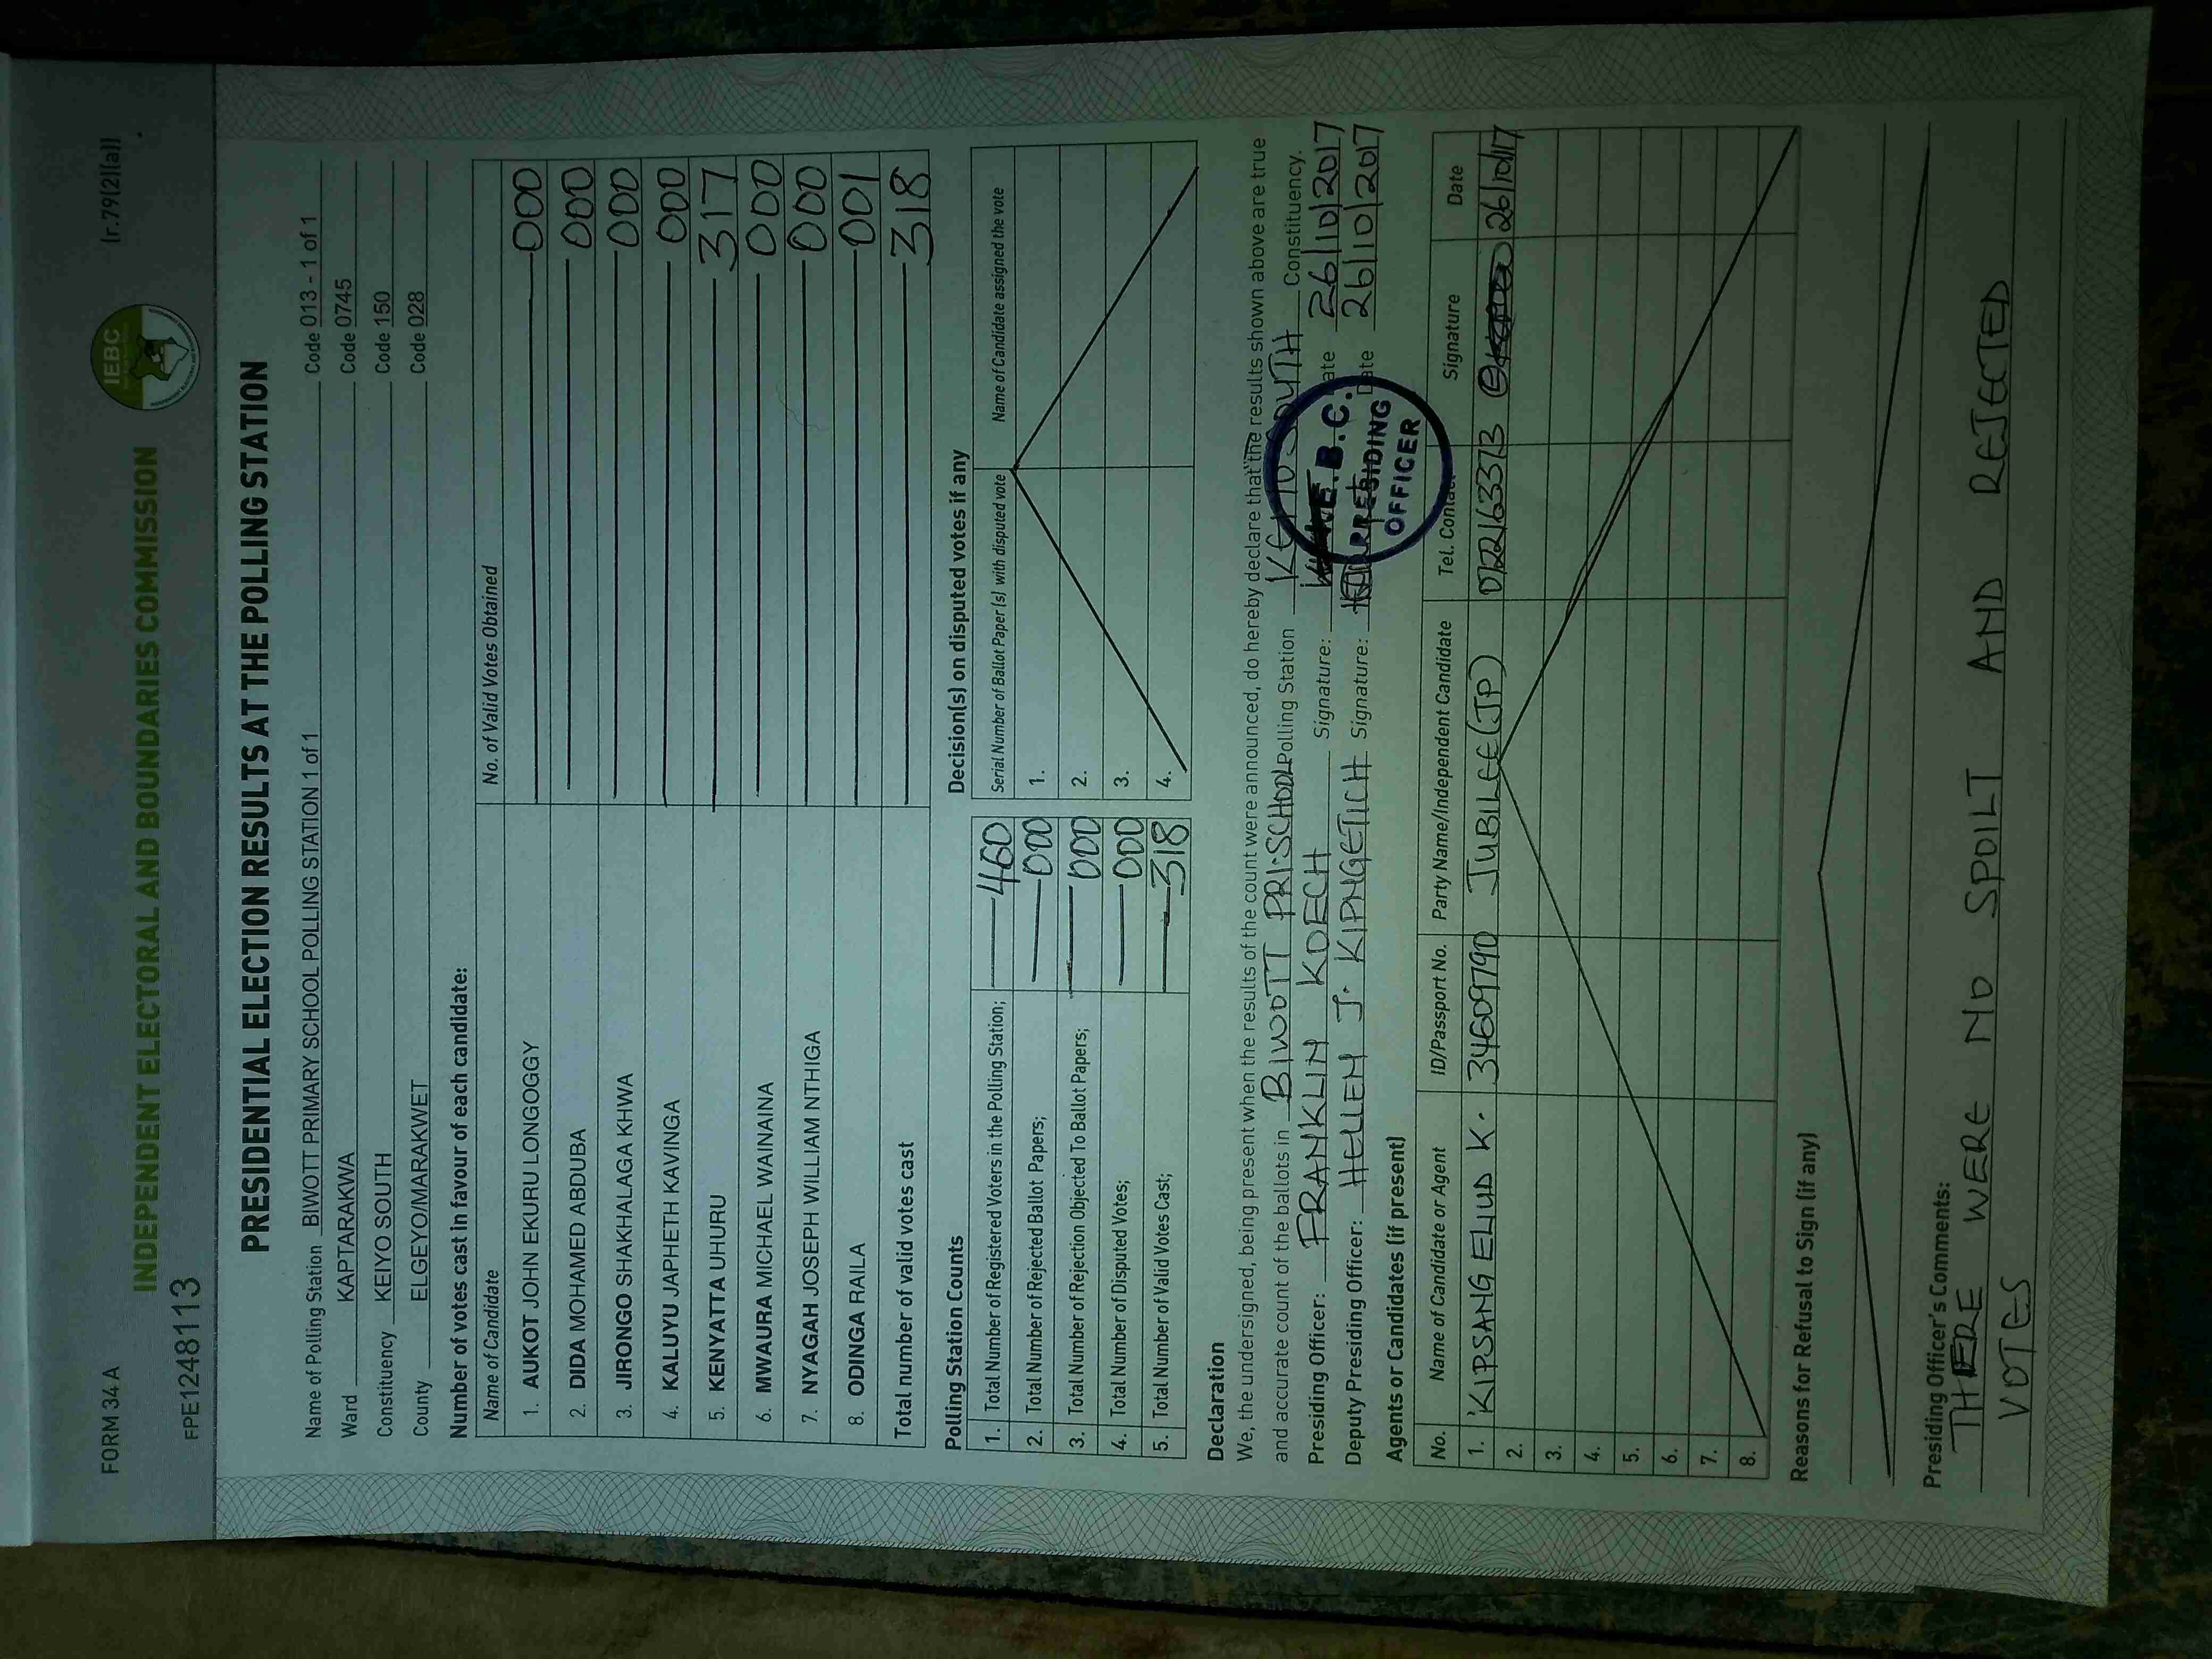 FORM 34 A
(r.79(2)(a))
IEBC
INDEPENDENT ELECTORAL AND BOUNDARIES COMMISSION
FPE1248113
PRESIDENTIAL ELECTION RESULTS AT THE POLLING STATION
Name of Polling Station BIWOTT PRIMARY SCHOOL POLLING STATION 1 of 1 Code 013 - 1 of 1
Ward KAPTARAKWA Code 0745
Constituency KEIYO SOUTH Code 150
County ELGEYO/MARAKWET Code 028
Number of votes cast in favour of each candidate:
Name of Candidate No. of Valid Votes Obtained
1. AUKOT JOHN EKURU LONGOGGY 000
2. DIDA MOHAMED ABDUBA 000
3. JIRONGO SHAKHALAGA KHWA 000
4. KALUYU JAPHETH KAVINGA 000
5. KENYATTA UHURU 317
6. MWAURA MICHAEL WAINAINA 000
7. NYAGAH JOSEPH WILLIAM NTHIGA 000
8. ODINGA RAILA 001
Total number of valid votes cast 318
Polling Station Counts
1. Total Number of Registered Voters in the Polling Station; 460
2. Total Number of Rejected Ballot Papers; 000
3. Total Number of Rejection Objected To Ballot Papers; 000
4. Total Number of Disputed Votes; 000
5. Total Number of Valid Votes Cast; 318
Decision(s) on disputed votes if any
Serial Number of Ballot Paper(s) with disputed vote Name of Candidate assigned the vote
1.
2.
3.
4.
Declaration
We, the undersigned, being present when the results of the count were announced, do hereby declare that the results shown above are true
and accurate count of the ballots in BIWOTT PRI.SCHOOL Polling Station KEIYO SOUTH Constituency.
Presiding Officer: FRANKLIN KOECH Signature: Date 26/10/2017
Deputy Presiding Officer: HELLEN J. KIPNGETICH Signature: Date 26/10/2017
I.E.B.C.
PRESIDING
OFFICER
Agents or Candidates (if present)
No. Name of Candidate or Agent ID/Passport No. Party Name/Independent Candidate Tel. Contact Signature Date
1. KIPSANG ELIUD K. 34609790 JUBILEE(JP) 0722163373 26/10/17
2.
3.
4.
5.
6.
7.
8.
Reasons for Refusal to Sign (if any)
Presiding Officer's Comments:
THERE WERE NO SPOILT AND REJECTED
VOTES